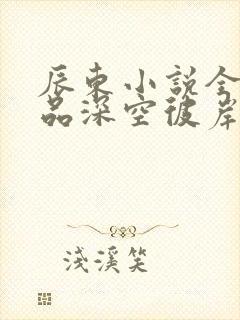 辰东小说全
品深空彼岸
浅溪笑